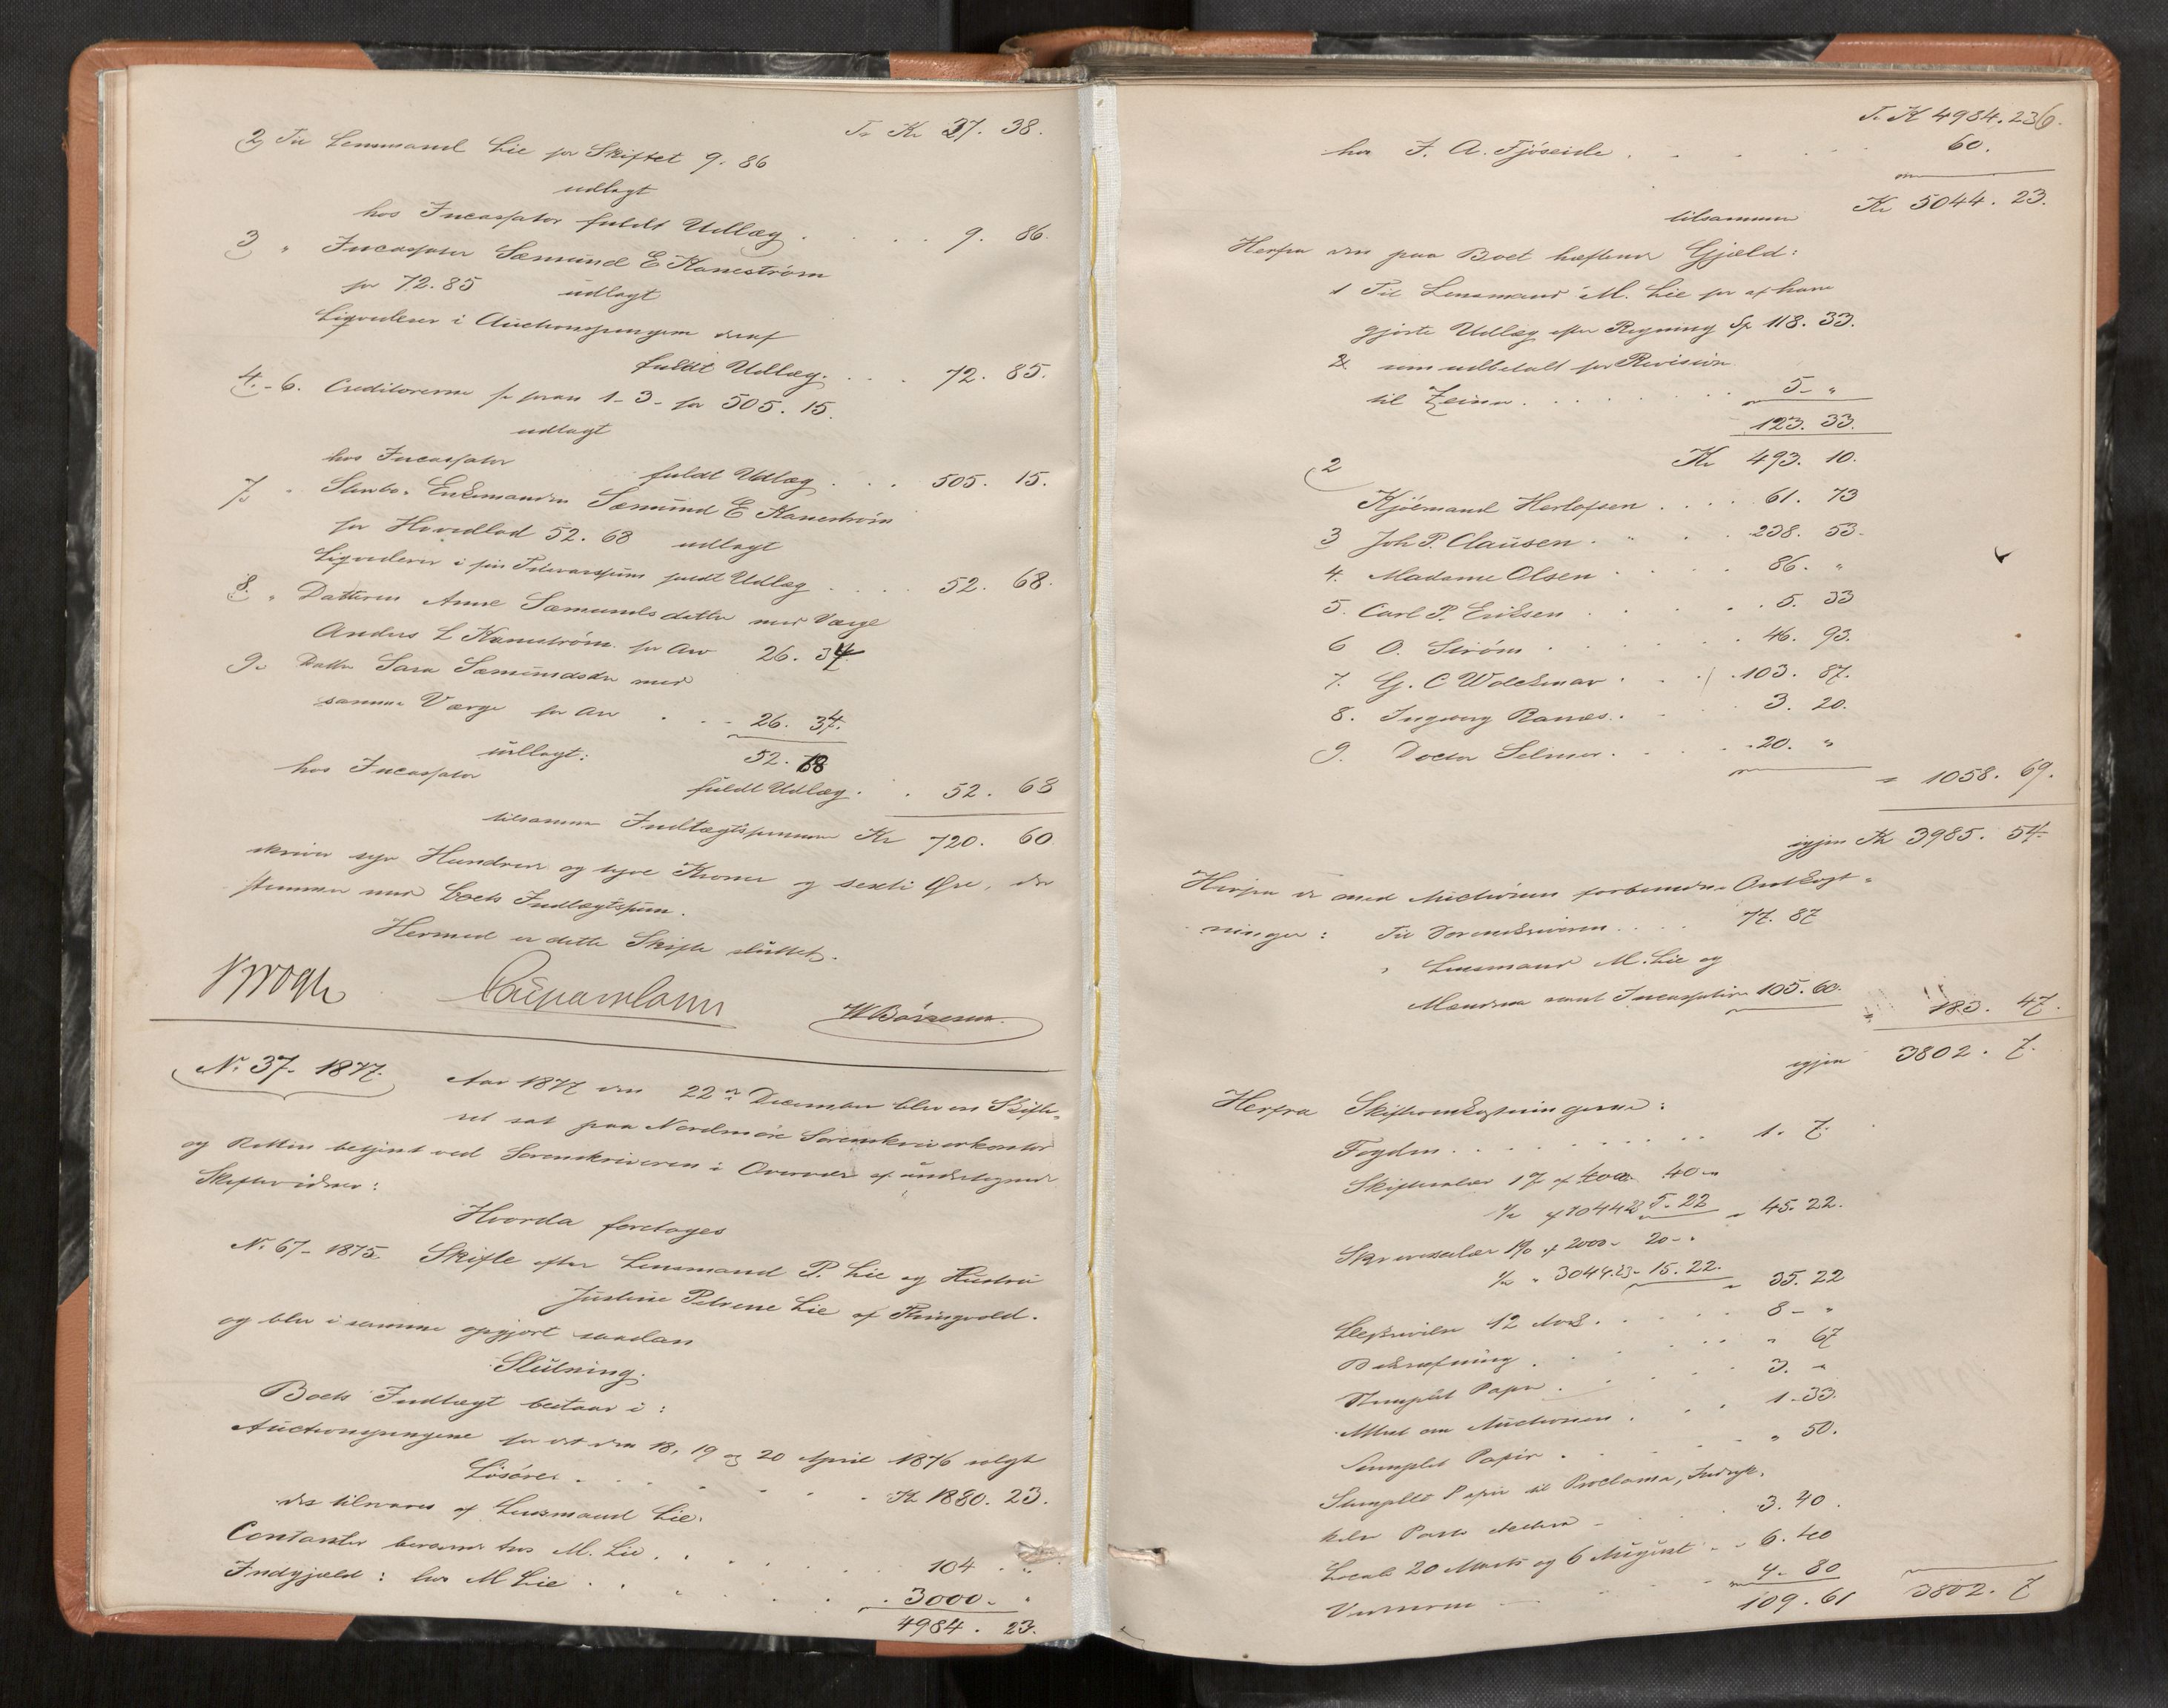 Tr Kr 27. 38.
2, Til Lensmand Lie for Skiftet 9. 86
udlagt
hos Incassator fuldt Udlæg . . . . 9. 86.
3 " Incassator Sæmund E Kanestrøm
for 72.85 udlagt
Liqviderer i Auctionspengene deraf
fuldt Udlæg. . . . 72. 85.
4.-6. Creditorerne foran 1-3- for 505. 15.
udlagt
hos Incassator fuldt Udlæg . . . 505. 15.
7, " Stervbo- Enkemanden Sæmund E Kanestrøm
for Hovedlod 52. 68 udlagt
Liqviderer i sin fuldt Udlæg . . . . 52. 68.
8. " Datteren Anne Sæmundsdatter med Værge
Anders L Kanestrøm for Arv 26. 34
9. Datter Sara Sæmundsdtr med
samme Værge for Arv . . . 26. 34.
udlagt: 52. 68
hos Incassator fuldt Udlæg . . 52. 68
tilsammen Indtægtssummen Kr 720. 60
skriver syv Hundrede og tyve Kroner og sexti Øre, der
stemmer med Boets Indtægtssum.
Hermed er dette Skifte sluttet.
Krogh
N. 37- 1877. Aar 1877 den 22de December blev en Skifte-
ret sat paa Nordmøre Sorenskriverkontor
og Retten betjent ved Sorenskriveren i Overvær af undertegnede
Skiftevidner:
Hvorda foretoges
N. 67- 1875. Skifte efter Lensmand P. Lie og Hustru
Justine Petrene Lie af Thingvold.
og blev i samme opgjort saadan
Slutning.
Boets Indtægt bestaar i:
Auctionspengene for det den 18, 19 og 20 April 1876 solgt
Løsøre . . . . . . . Kr 1880. 23.
der tilsvares af Lensmand Lie.
Contanter beroende hos M. Lie . . . . . 104 . "
Indgjæld: hos M Lie . . . . . . 3000. "
4984 . 23.
Tr Kr 4984. 23.
hos J. A. Tjøseide . . . . . 60.
tilsammen Kr 5044. 23.
Herfra den paa Boet hæftende Gjæld:
1 Til Lensmand M. Lie for af ham
gjorte Udlæg efter Regning Sp 118. 33.
2 som udbetalt for Revision
til . . . . . . . 5- "
123. 33.
2 Kr 493. 10.
Kjøbmand Herlofsen . . . . 61. 73
3 Joh P. Clausen . . . . 238. 53.
4. Madame Olsen . . . . 86. "
5. Carl P. Eriksen . . . . 5. 33
6 O. Strøm . . . . . 46. 93.
7. G. C Wolckmar . . . 103. 87.
8. Ingeborg Ranæs . . . 3. 20.
9. Doctor Selmer. . . . 20. "
" 1058. 69.
igjen Kr 3985. 54.
Herfra de med Auctionen forbundne Omkost-
ninger: Til Sorenskriveren . . . . 77. 87
" Lensmand M. Lie og
Mændene samt Incassation 105. 60.
" 183. 47.
igjen 3802. 7.
Herfra Skifteomkostningerne:
Fogden . . . . . . . . 1. 7.
Skiftesalær 1% af 4000 40 "
½ af 1044.23 5.22 " 45. 22.
Skriversalær 1% af 2000- 20-"
½ " 3044.23- 15.22. " 35. 22
12 Ark . . . . . 8- "
Bekræftning . . . . . " 67
Stemplet Papir . . . . 3. "
Attest om Auctionen . . . 1-33.
Stemplet Papir . . . . " 50.
Stemplet Papir til Proclama, Indryk-
kelse Porto . . . 3. 40.
Local 20 Marts og 6 August . . 6. 40
. . . 4- 80
109. 61 3802. 7